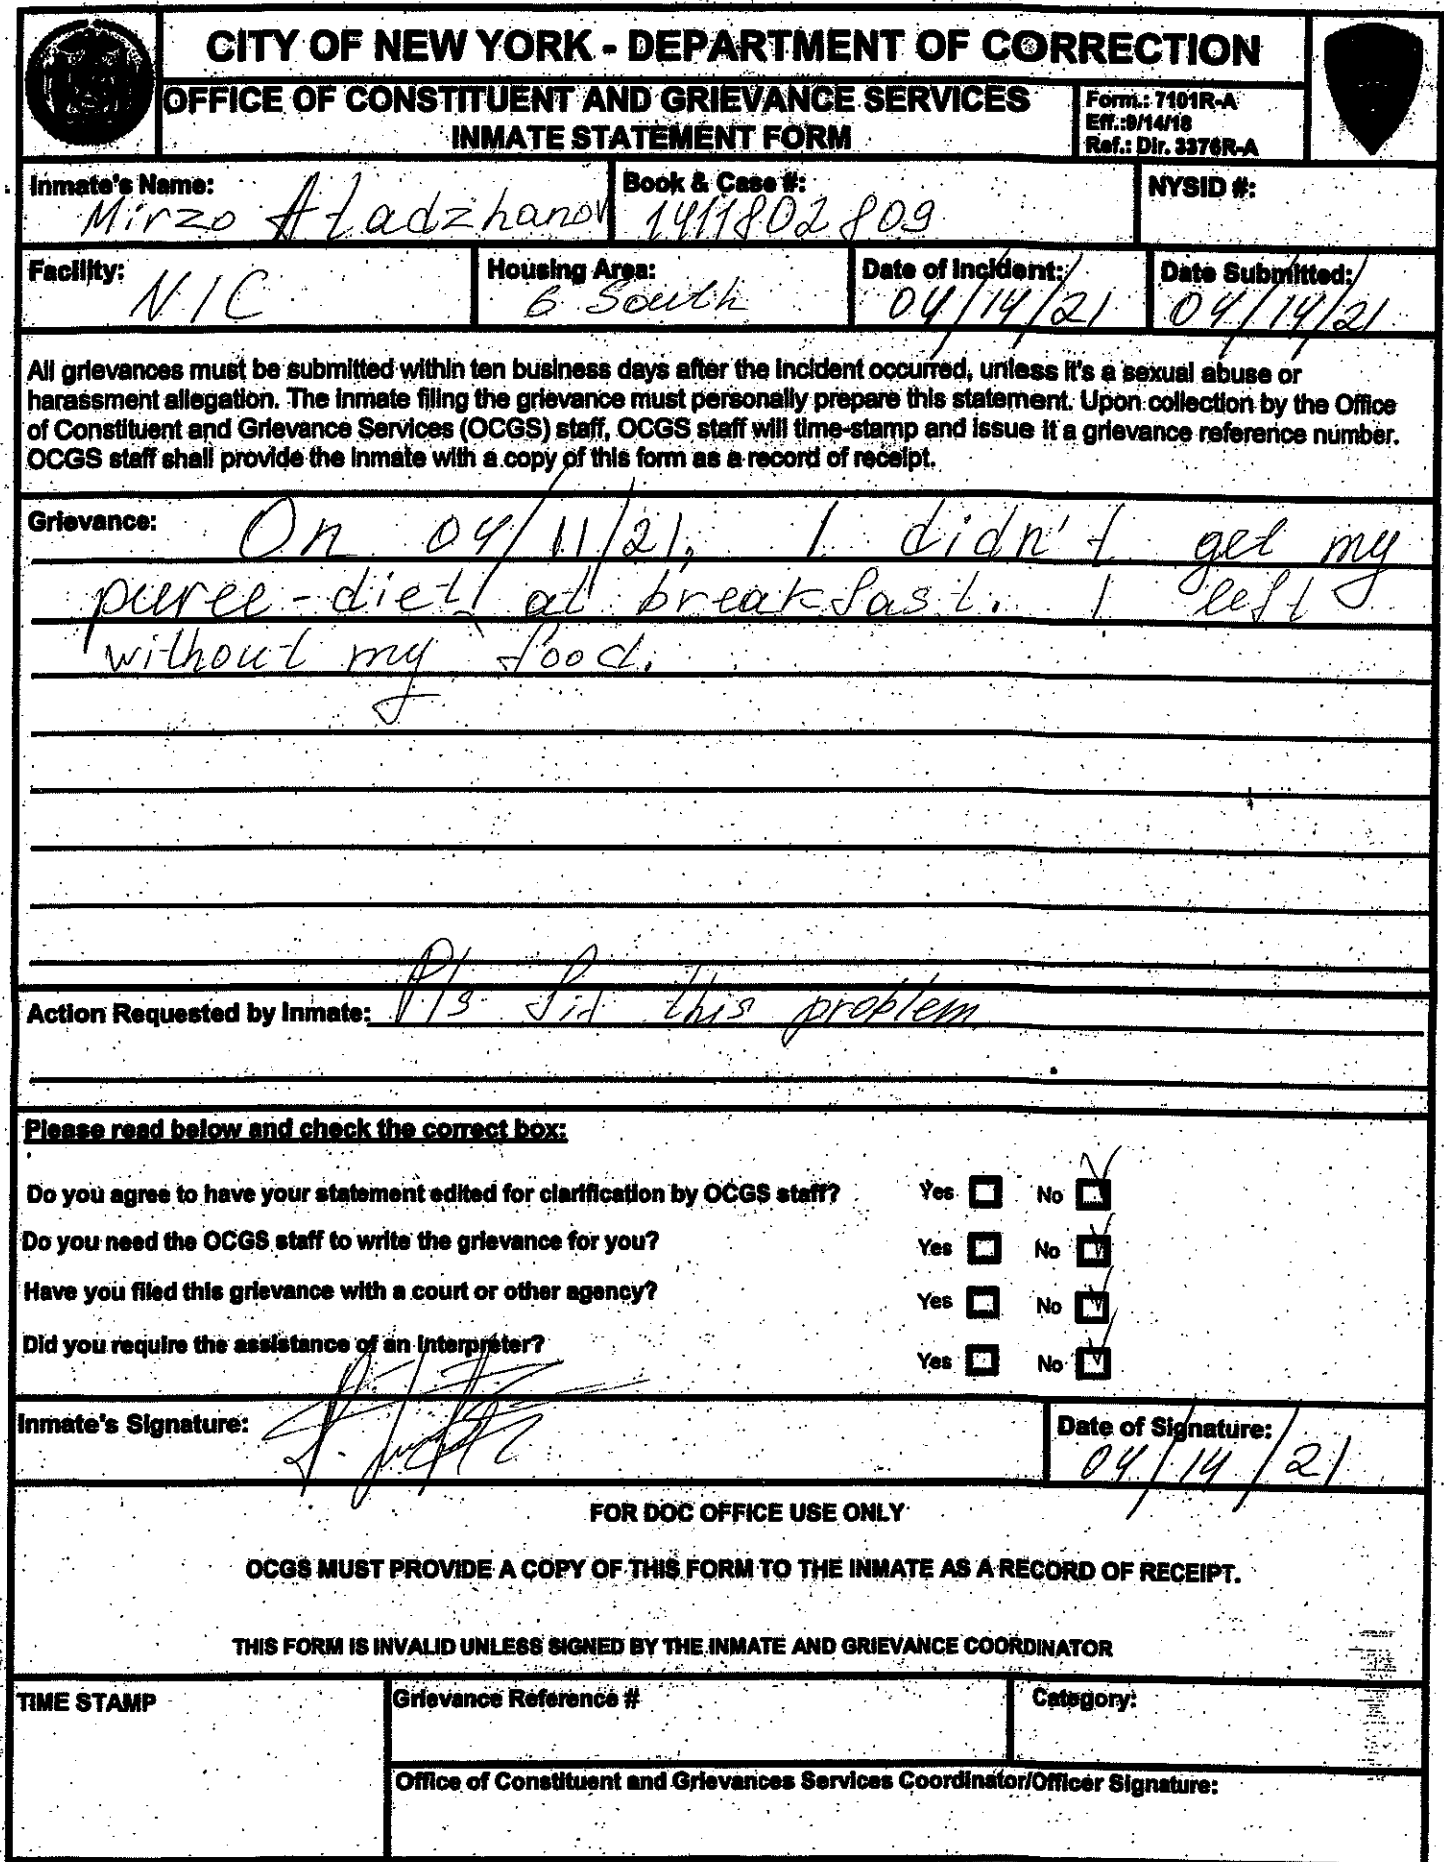 CITY OF NEW YORK - DEPARTMENT OF CORRECTION
OFFICE OF CONSTITUENT AND GRIEVANCE SERVICES
INMATE STATEMENT FORM
Form.: 7101R-A
Eff.:9/14/18
Ref.: Dir. 3376R-A
Inmate's Name:
Mirzo Atadzhanov
Book & Case #:
1411802809
NYSID #:
Facility:
NIC
Housing Area:
6 South
Date of Incident:
04/14/21
Date Submitted:
04/14/21
All grievances must be submitted within ten business days after the incident occurred, unless it's a sexual abuse or
harassment allegation. The inmate filing the grievance must personally prepare this statement. Upon collection by the Office
of Constituent and Grievance Services (OCGS) staff, OCGS staff will time-stamp and issue it a grievance reference number.
OCGS staff shall provide the inmate with a copy of this form as a record of receipt.
Grievance: On 04/11/21, I didn't get my
puree-diet at breakfast. I left
without my food.
Action Requested by Inmate: Pls fix this problem
Please read below and check the correct box:
Do you agree to have your statement edited for clarification by OCGS staff? Yes No
Do you need the OCGS staff to write the grievance for you? Yes No
Have you filed this grievance with a court or other agency? Yes No
Did you require the assistance of an interpreter? Yes No
Inmate's Signature:
Date of Signature:
04/14/21
FOR DOC OFFICE USE ONLY
OCGS MUST PROVIDE A COPY OF THIS FORM TO THE INMATE AS A RECORD OF RECEIPT.
THIS FORM IS INVALID UNLESS SIGNED BY THE INMATE AND GRIEVANCE COORDINATOR
TIME STAMP
Grievance Reference #
Category:
Office of Constituent and Grievances Services Coordinator/Officer Signature: